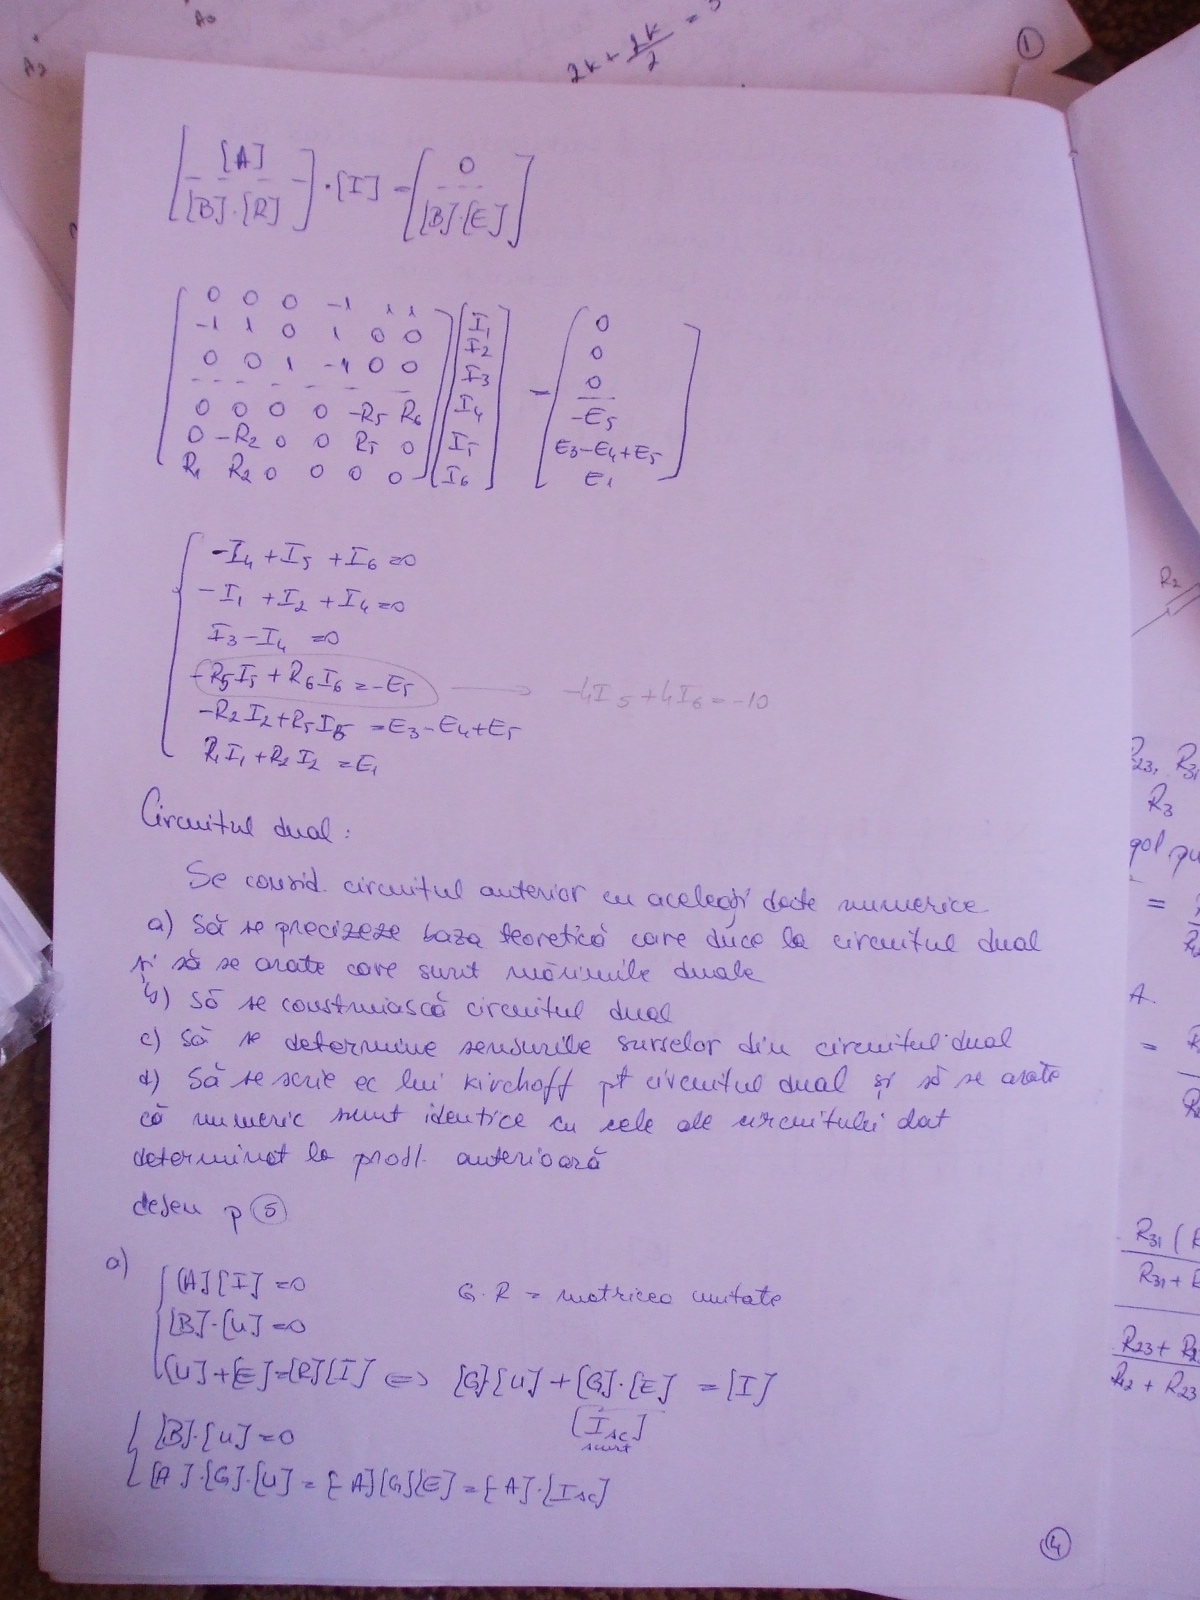 A0
A3
2k + 2k/2 = 3
1
[ [A] / [B]·[R] ] · [I] = [ 0 / [B]·[E] ]
[ 0 0 0 -1 1 1 ] [ I1 ] [ 0 ]
-1 1 0 1 0 0 I2 0
0 0 1 -1 0 0 I3 = 0
0 0 0 0 -R5 R6 I4 -E5
0 -R2 0 0 R5 0 I5 E3-E4+E5
R1 R2 0 0 0 0 I6 E1
-I4 + I5 + I6 = 0
-I1 + I2 + I4 = 0
I3 - I4 = 0
-R5I5 + R6I6 = -E5 → -4I5 + 4I6 = -10
-R2I2 + R5I5 = E3 - E4 + E5
R1I1 + R2I2 = E1
Circuitul dual :
Se consid. circuitul anterior cu aceleași date numerice
a) Să se precizeze baza teoretică care duce la circuitul dual
și să se arate care sunt mărimile duale
b) Să se construiască circuitul dual
c) Să se determine sensurile surselor din circuitul dual
d) Să se scrie ec lui Kirchoff pt circuitul dual și să se arate
că numeric sunt identice cu cele ale circuitului dat
determinat la probl. anterioară
desen p 5
a) [A][I] = 0 G·R = matricea unitate
[B]·[U] = 0
[U] + [E] = [R][I] ⇔ [G][U] + [G]·[E] = [I]
[Isc]
scurt
[B]·[U] = 0
[A]·[G]·[U] = [-A][G][E] = [-A]·[Isc]
4
R2
R23, R31
R3
gol pu
=
A.
=
R31 (R
R31 + R
R23 + R2
R12 + R23